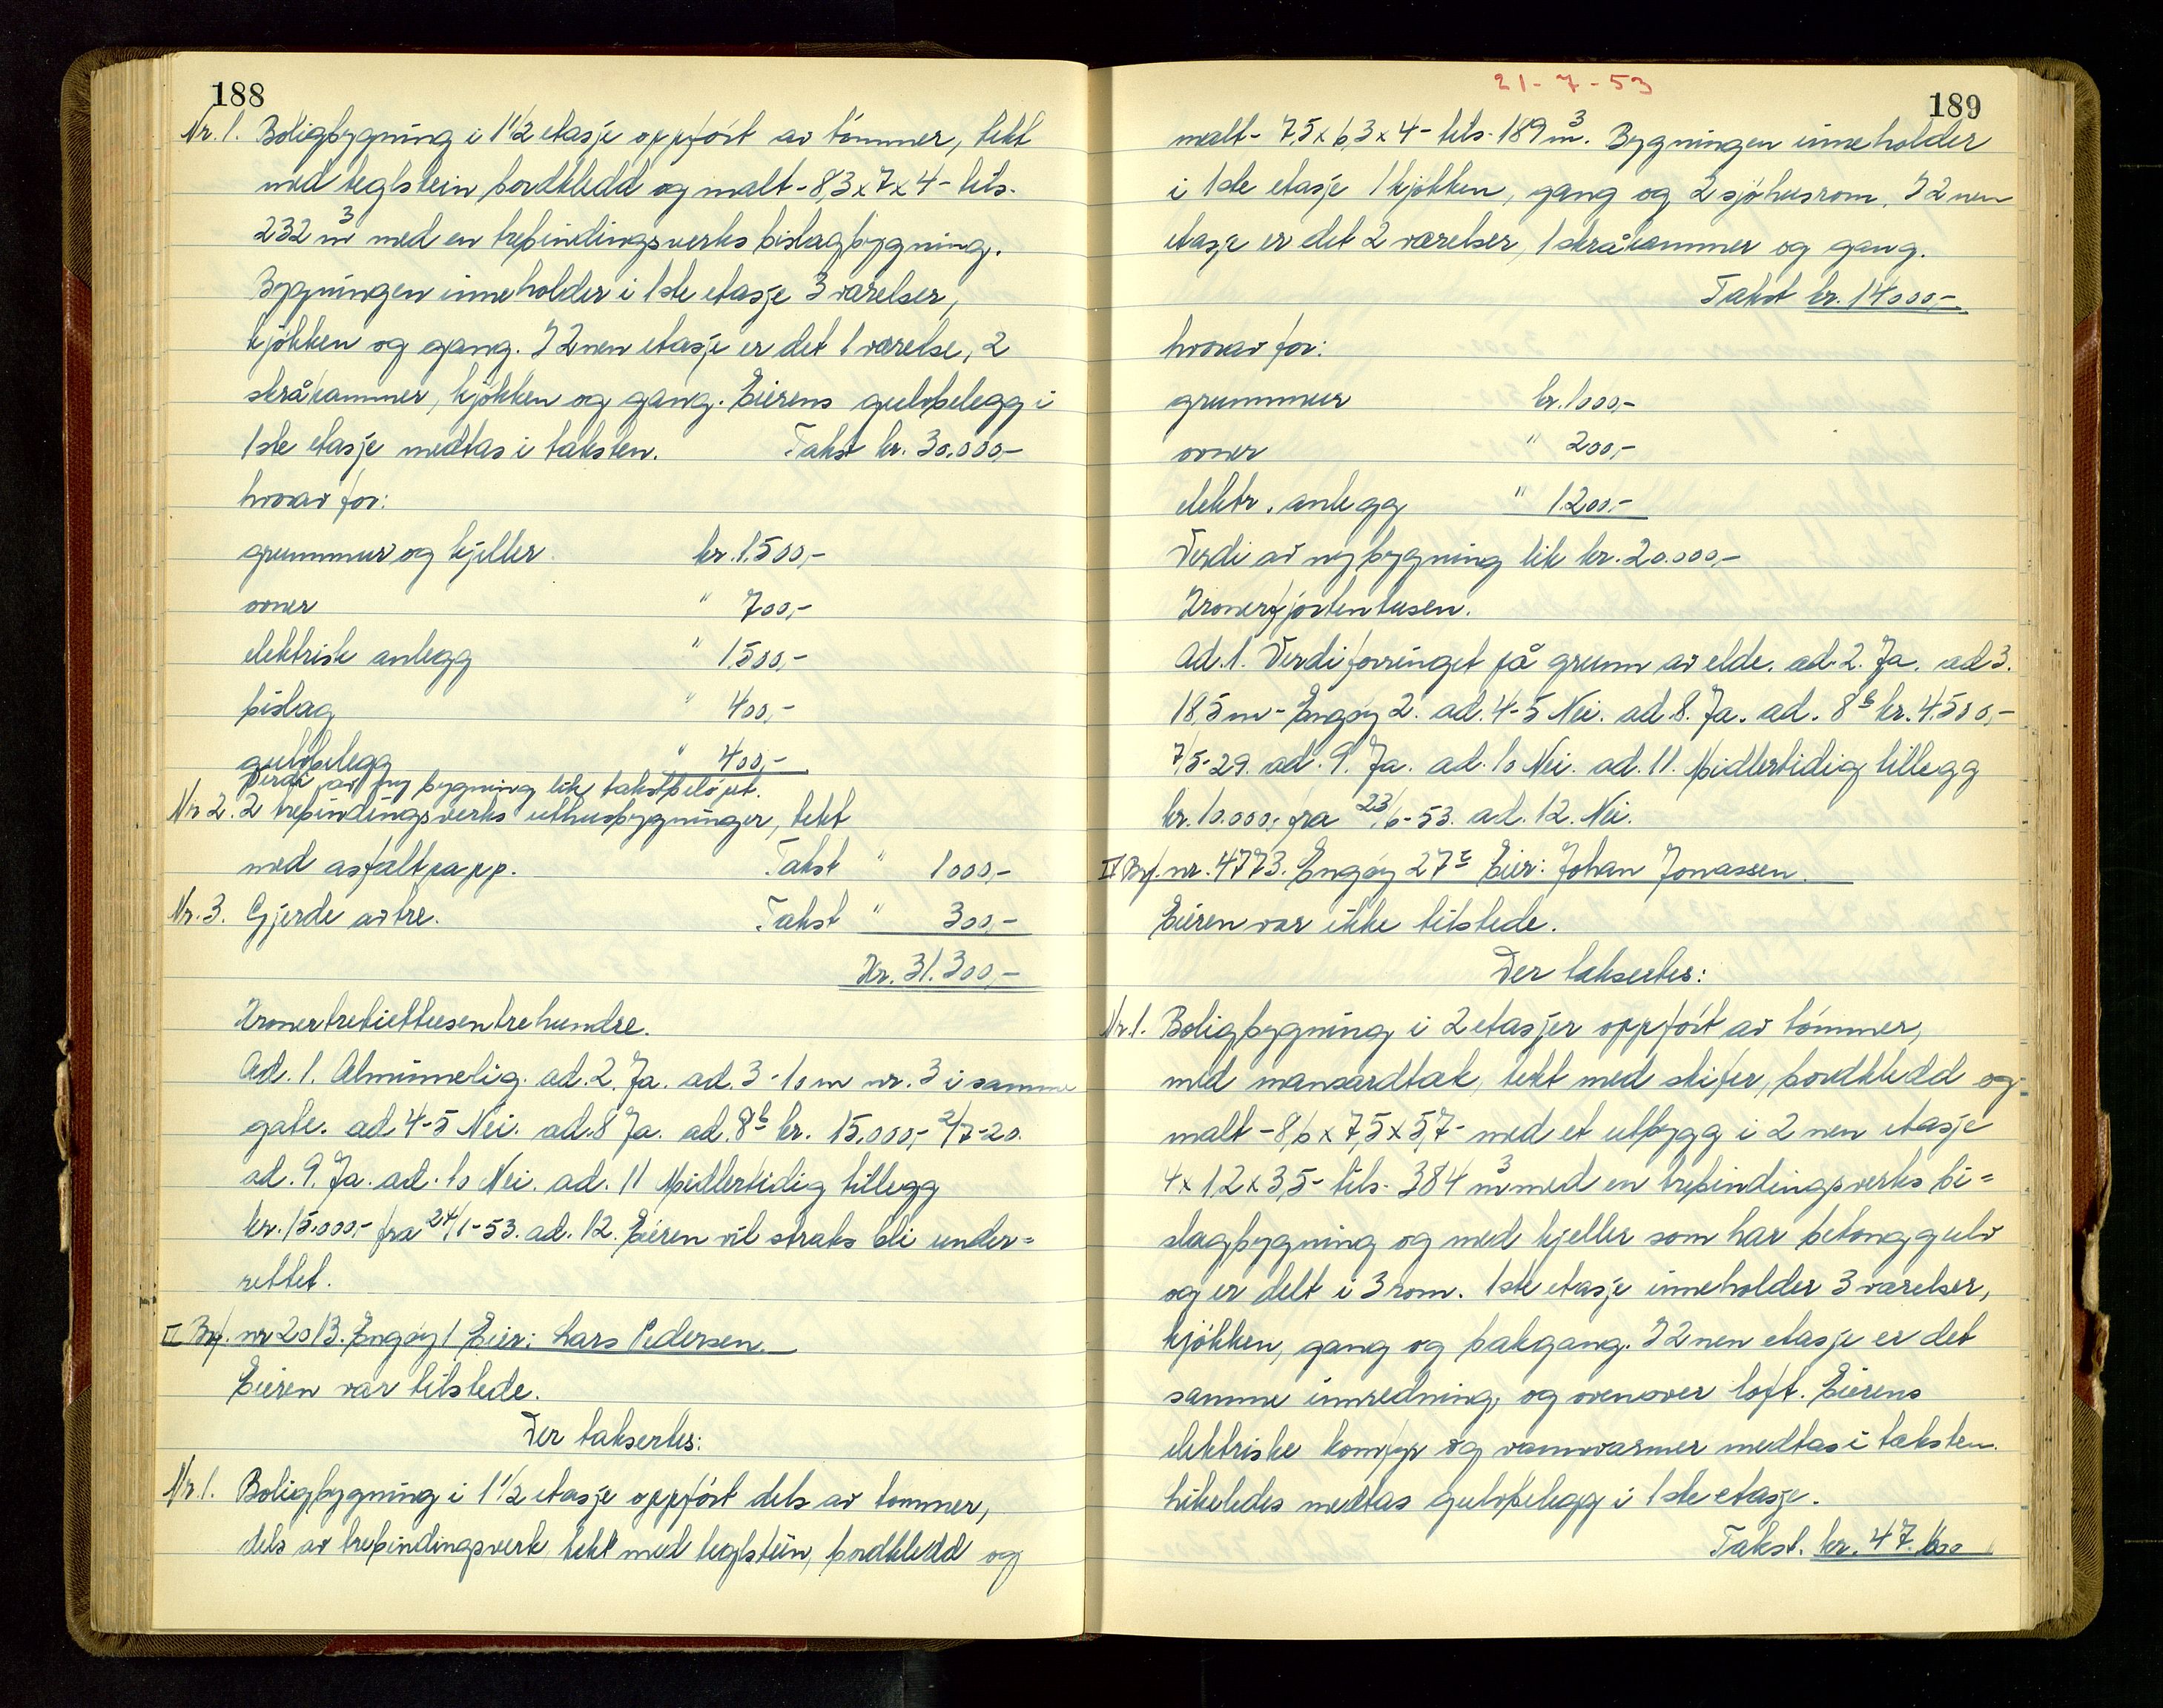 188
Nr. 1. Boligbygning i 1 1/2 etasje oppført av tömmer, tekt
med teglstein bordkledd og malt - 8,3 x 7 x 4 - tils.
232 m³ med en trebindingsverks bislagbygning.
Bygningen inneholder i 1ste etasje 3 værelser,
kjökken og gang. I 2nen etasje er det 1 værelse, 2
skråkammer, kjökken og gang. Eierens gulvbelegg i
1ste etasje medtas i taksten. Takst kr. 30.000,-
hvorav for:
grunnmur og kjeller kr. 1.500,-
ovner " 700,-
elektrisk anlegg " 1.500,-
bislag " 400,-
gulvbelegg " 400,-
Verdi av ny bygning lik takstbelöpet.
Nr. 2. 2 trebindingsverks uthusbygninger, tekt
med asfaltpapp. Takst " 1000,-
Nr. 3. Gjerde av tre. Takst " 300,-
Kr. 31.300,-
Kronertrettiettusentrehundre.
Ad. 1. Alminnelig. ad. 2. Ja. ad. 3 - 10 m nr. 3 i samme
gate. ad 4-5 Nei. ad. 8 Ja. ad. 8b kr. 15.000,- 2/7-20.
ad. 9. Ja. ad. 10 Nei. ad. 11 Midlertidig tillegg
kr. 15.000,- fra 24/1-53. ad. 12. Eieren vil straks bli under=
rettet.
II Brf. nr 2013. Engöy 1 Eier: Lars Pedersen.
Eieren var tilstede.
Der taksertes:
Nr. 1. Boligbygning i 1 1/2 etasje oppført dels av tømmer,
dels av trebindingsverk tekt med teglstein, bordkledd og
21-7-53
189
malt - 7,5 x 6,3 x 4 - tils. 189 m³. Bygningen inneholder
i 1ste etasje 1 kjökken, gang og 2 sjöhusrom. I 2nen
etasje er det 2 værelser, 1 skråkammer og gang.
Takst kr. 14000,-
hvorav for:
grunnmur kr. 1000,-
ovner " 200,-
elektr. anlegg " 1200,-
Verdi av ny bygning lik kr. 20.000,-
Kronerfjortentusen.
Ad. 1. Verdiforringet på grunn av elde. ad. 2. Ja. ad 3.
18,5 m - Engöy 2. ad. 4-5 Nei. ad. 8. Ja. ad. 8b kr. 4.500,-
7/5-29. ad. 9. Ja. ad. 10 Nei. ad. 11. Midlertidig tillegg
kr. 10.000,- fra 23/6-53. ad. 12. Nei.
Brf. nr. 4773. Engöy Eier: Johan Jonassen.
Eieren var ikke tilstede.
Der taksertes:
Nr. 1. Boligbygning i 2 etasjer oppført av tömmer,
med mansardtak, tekt med skifer, bordkledd og
malt - 8,6 x 7,5 x 5,7 - med et utbygg i 2nen etasje
4 x 1,2 x 3,5 - tils. 384 m³ med en trebindingsverks bi=
slagbygning og med kjeller som har betonggulv
og er delt i 3 rom. 1ste etasje inneholder 3 værelser,
kjökken, gang og bakgang. I 2nen etasje er det
samme innredning, og ovenover loft. Eierens
elektriske komfyr og vannvarmer medtas i taksten.
Likeledes medtas gulvbelegg i 1ste etasje.
Takst. kr.